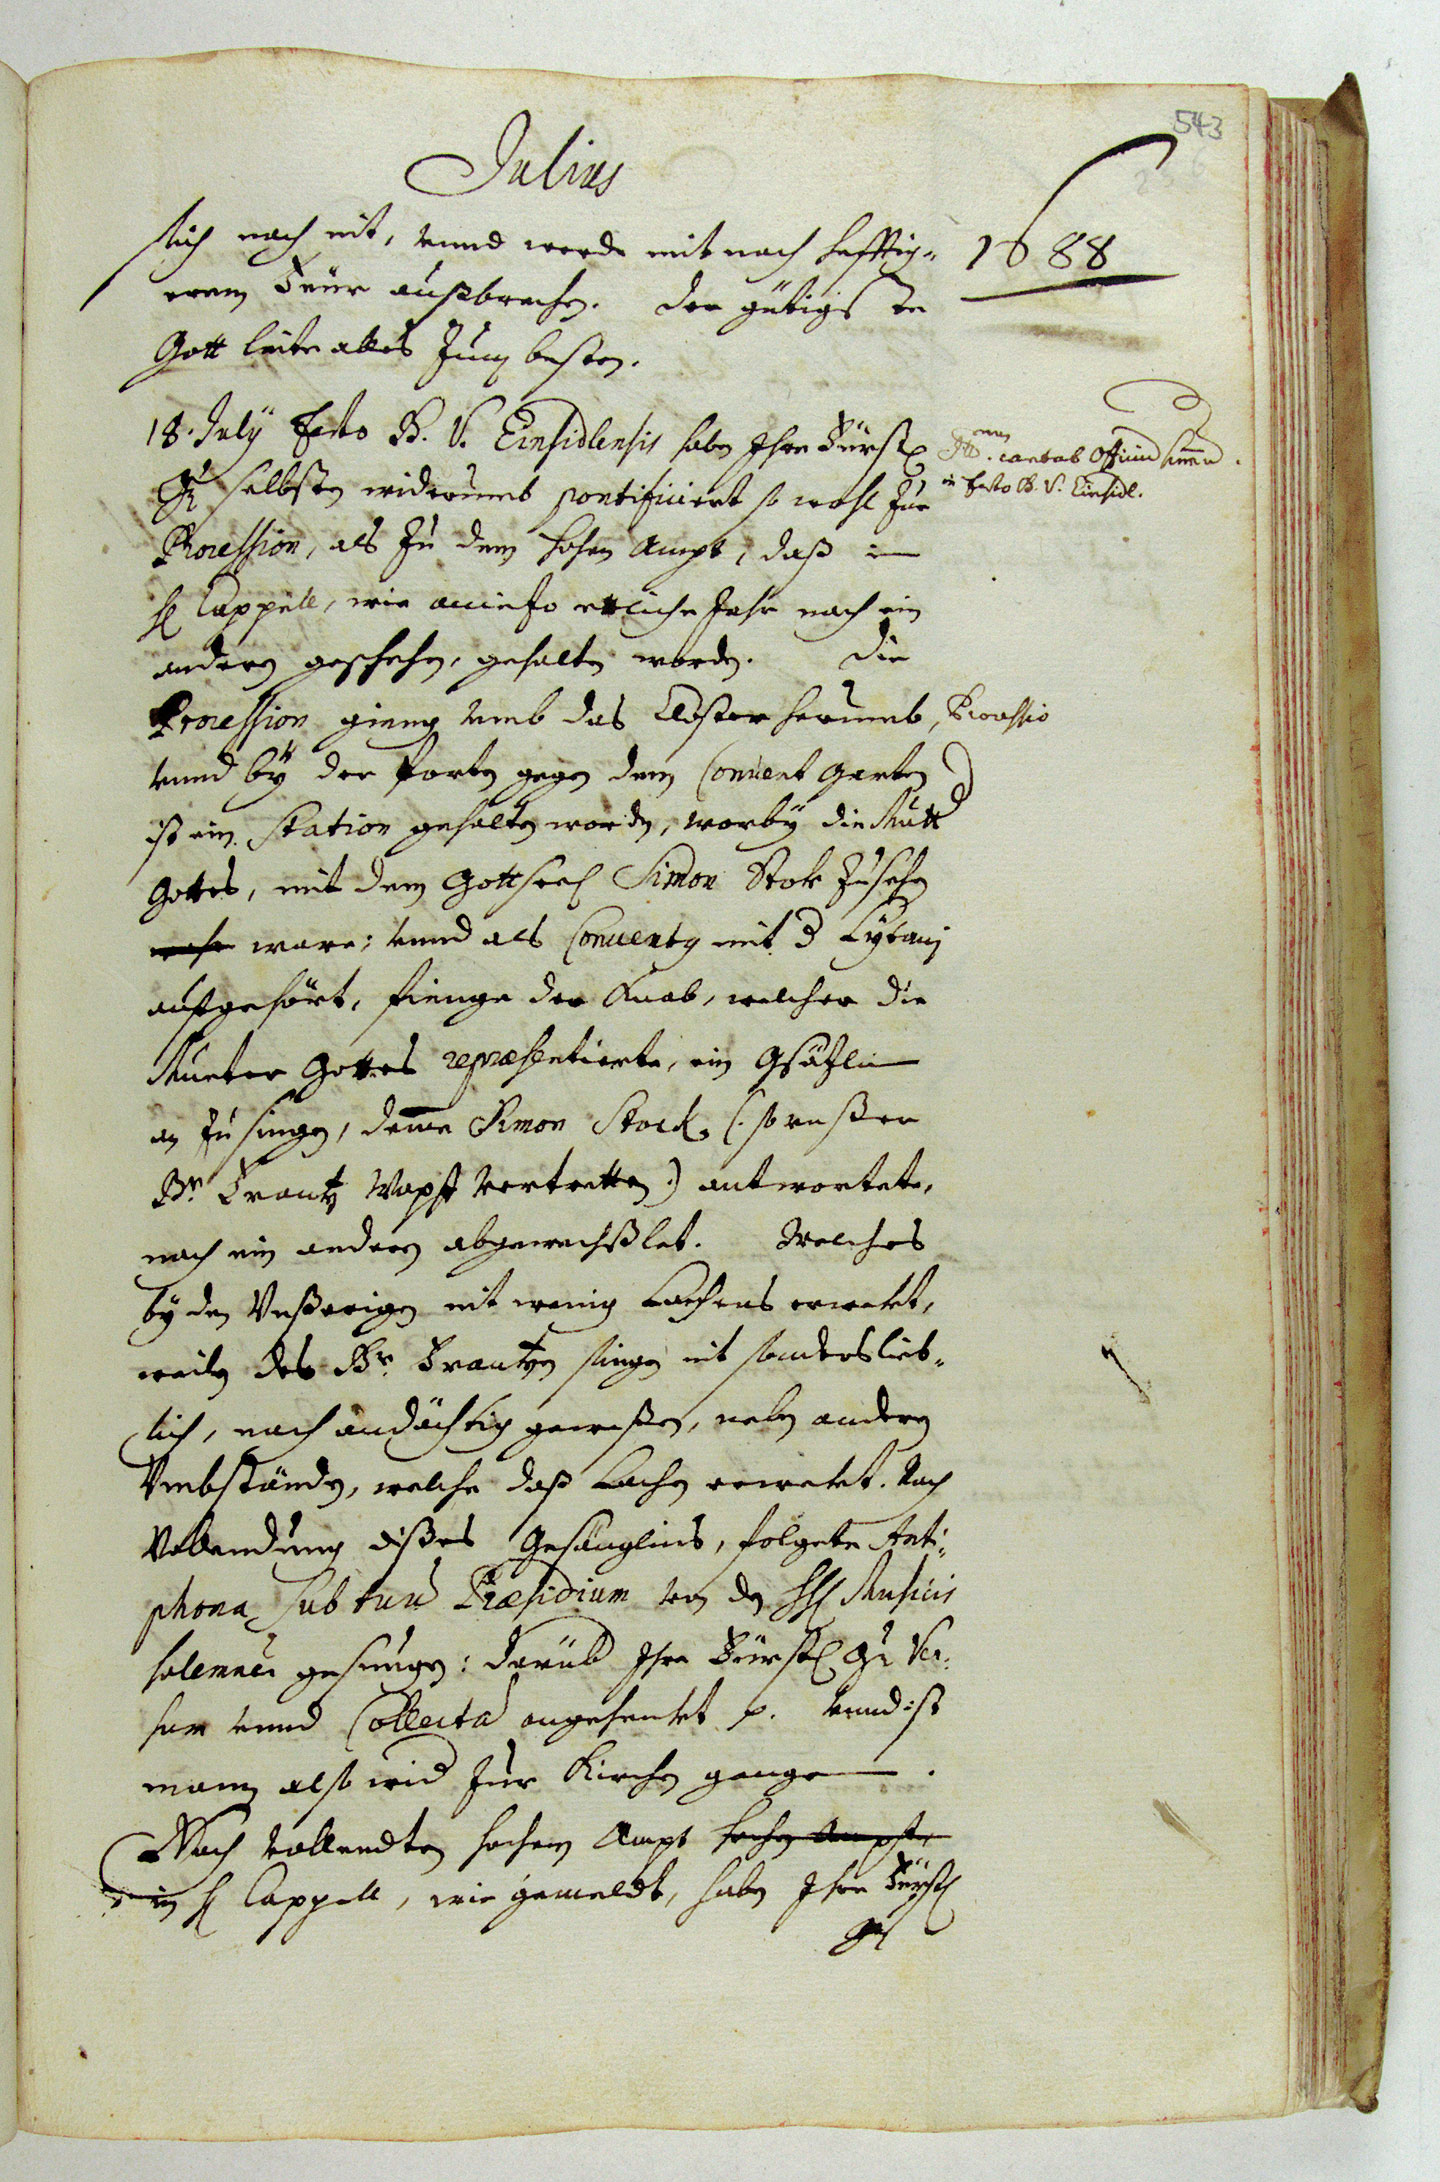 543
Julius
1688
sich noch nit, vnnd werde mit noch hefftig-
erem Feür außbrechen. Der gütigste
Gott leite alles zum besten.
18. July Festo B. V. Einsidlensis haben Ihre Fürstl.
Gn. selbsten widerumb pontificiert so wohl zur
Procession, als zu dem hohen Ampt, daß in
hl Cappell, wie aniezo ettliche Jahr nach ein
anderen geschehen, gehalten worden. Die
Procession gieng vmb das Closter herumb,
vnnd bÿ der Porten gegen dem Convent Garten
ist ein Station gehalten worden, worbÿ die Mutt
Gottes, mit dem Gottseel Simon Stok zusehen
ware; vnnd als Conventg mit d Lytanj
aufgehört, fienge der Knab, welcher die
Mueter Gottes repræsentierte, ein Gsäzlin
an zu singen, deme Simon Stock, (: so vnßer
Br. Frantz Wapst vertretten :) antwortete,
nach ein anderen abgewechßlet. Welches
bÿ den Vnßerigen nit wenig Lachens erwekt,
weilen des Br. Frantzen singen nit sonders lieb-
lich, noch andächtig geweßen, neben anderen
Vmbständen, welche daß Lachen erwekt. Nach
Vollendung dißes Gesänglins, folgete Anti-
phona, sub tuum Præsidium von den HH Musicis
solemnes gesungen: darüb Ihre Fürstl Gn Ver-
sum vnnd Collecta angehenkt p. vnnd ist
mann also wid zur Kirchen gangen.
Nach vollendten hochem Ampt hochen Ampt,
in hl Cappell, wie gemeldt, haben Ihre Fürstl
Gn
cantat Officium summum
in festo B. V. Einsidl.
Processio